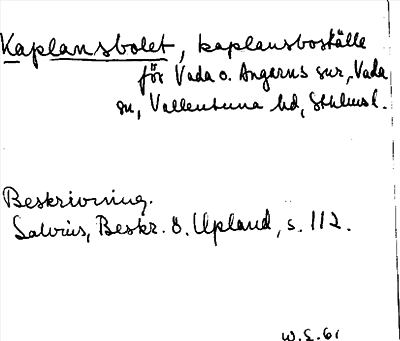 Kaplansbolet, kaplansboställe
för Vada o. Angarns snr, Vada
sn, Vallentuna hd, Sthlms l.
Beskrivning.
Salvius, Beskr. ö. Upland, s. 112.
W.S. 61